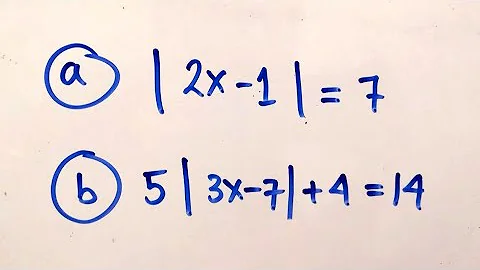 a |2x-1| = 7
b 5|3x-7|+4=14